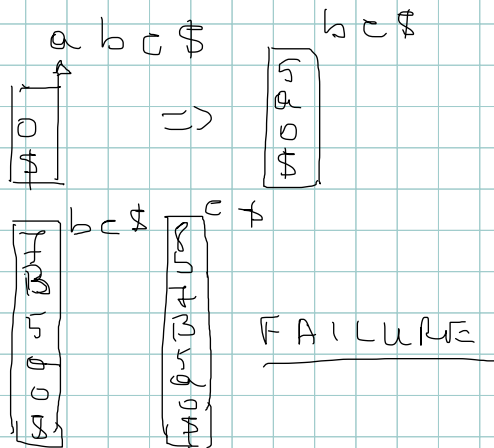 a b c $
0
$
=>
b c $
5
a
0
$
b c $
7
B
5
a
0
$
c $
8
b
7
B
5
a
0
$
FAILURE